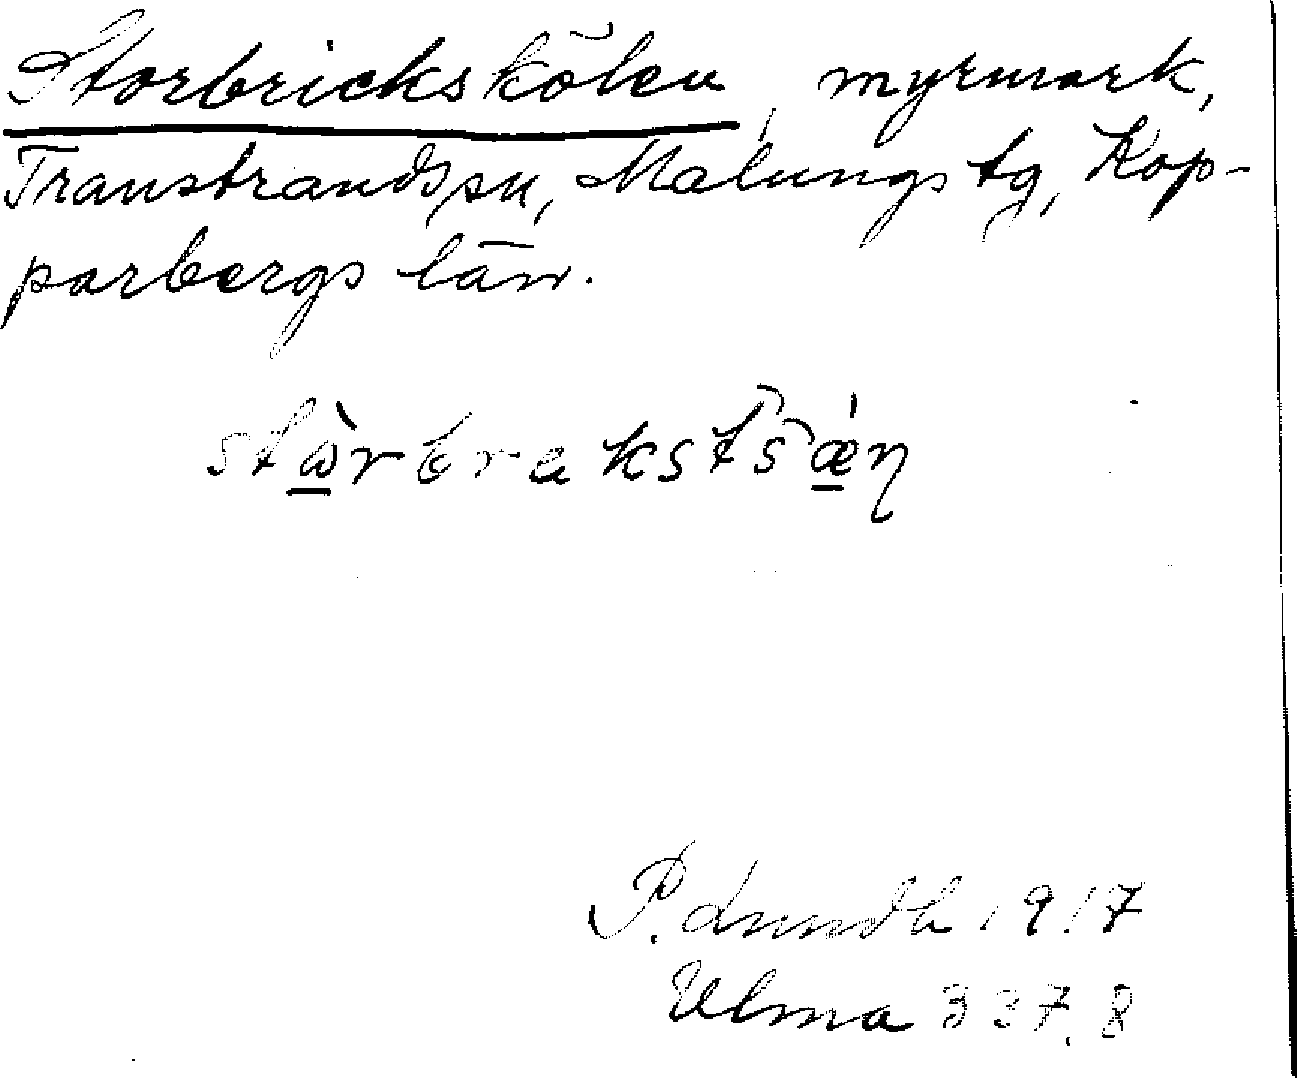 Storbrickskölen, myrmark,
Transtrands sn, Malungs tg, Kop-
parbergs län.
stὼrbrekstʃǽη
P. Lundh 1917
Ulma 337.8